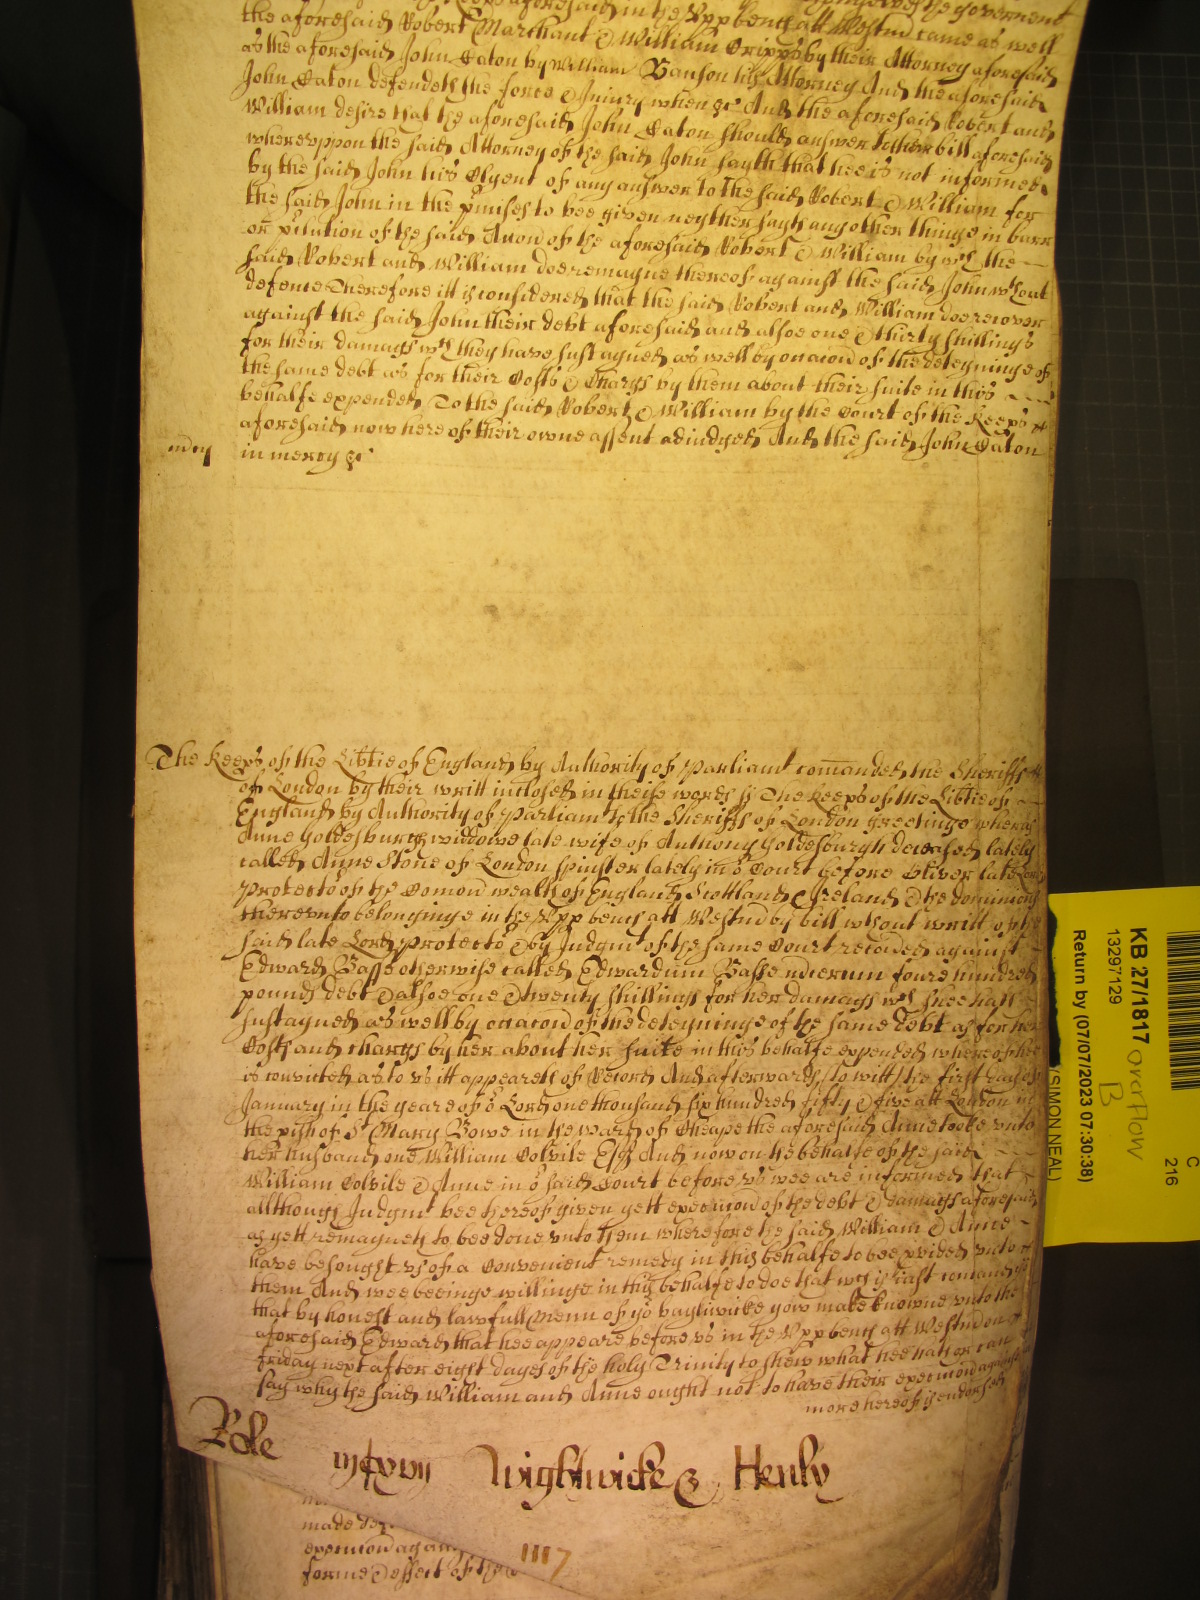 the aforesaid Robert Marchant & William Cripps by their Attorney aforesaid
as the aforesaid John Eaton by William Banson his Attorney And the aforesaid
John Eaton defendeth the force & Iniury when &c And the aforesaid Robert and
William desire that the aforesaid John Eaton should answer to their bill aforesaid
wherevppon the said Attorney of the said John sayth that hee is not informed
by the said John his Clyent of any answer to the said Robert & William for
the said John in the pmises to bee given neyther sayth any other thinge in barr
or of the said Accon of the aforesaid Robert & William by wch the
said Robert and William doe remayne thereof against the said John wthout
defence Therefore itt is considered that the said Robert and William doe recover
against the said John their debt aforesaid and alsoe one & thirty shillings
for their damags wch they have sustayned as well by occacon of the deteyninge of
the same debt as for their Costs & Chargs by them about their suite in this
behalfe expended To the said Robert & William by the Court of the Keeps
aforesaid now here of their owne assent adiudged And the said John Eaton
mcy in mercy &c
The Keeps of the Libtie of England by Authority of Parliamt comanded the Sheriffs
of London by their writt inclosed in theise words ss The Keeps of the Libtie of
England by Authority of Parliamt to the Sheriffs of London greetinge whereas
Anne Goldesburgh widdowe late wife of Anthony Goldesburgh deceased lately
called Anne Stone of London spinster lately in o Court before Oliver late Lord
Protector of the Comon wealth of England Scottland & Ireland & the dominions
therevnto belonginge in the Vpp bench att Westm by bill wthout writt of the
said late Lord Protector & by Iudgmt of the same Court recoved against
Edward Basse otherwise called Edwardum Basse foure hundred
pounds debt & alsoe one & twenty shillings for her damags wch shee hath
sustayned as well by occacon of the deteyninge of the same debt as for her
Costs and chargs by her about her suite in this behalfe expended whereof hee
is convicted as to vs itt appeareth of Record And afterwards (to witt) the first day of
January in the yeare of o Lord one thousand six hundred fifty & five att London in
the pish of St Mary Bowe in the ward of Cheape the aforesaid Anne tooke vnto
her husband one William Colvile Esqr And now on the behalfe of the said
William Colvile & Anne in o said Court before vs wee are informed that
allthough Iudgmt bee hereof given yett execucon of the debt & damags aforesaid
as yett remayneth to bee done vnto them wherefore the said William & Anne
have besought vs of a Convenient remedy in this behalfe to bee pvided vnto
them And wee beeinge willinge in this behalfe to doe that wch is iust comand
that by honest and lawfull menn of yo bayliwicke yow make knowne vnto the
aforesaid Edward that hee appeare before vs in the Vpp bench att Westm on
Friday next after eight dayes of the holy Trinity to shew what hee hath or can
say why the said William and Anne ought not to have their execucon against
more hereof is endorsed
Role Wightwicke & Henly
1117
execucon again
forme & effect of the
KB 27/1817 overflow
B
13297129
Return by (07/07/2023 07:30:38)
(SIMON NEAL)
C
216